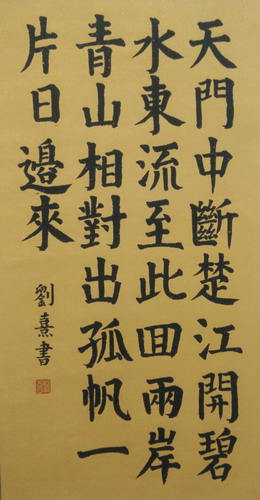 天門中斷楚江開碧
水東流至此回兩岸
青山相對出孤帆一
片日邊來
劉熹書